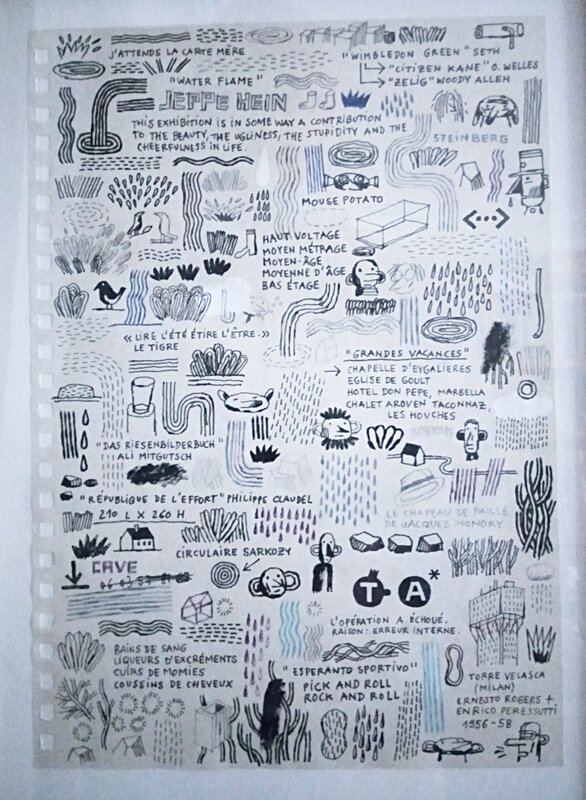 J'ATTENDS LA CARTE MÈRE
"WIMBLEDON GREEN" SETH
"CITIZEN KANE" O. WELLES
"ZELIG" WOODY ALLEN
"WATER FLAME"
JEPPE HEIN
THIS EXHIBITION IS IN SOME WAY A CONTRIBUTION
TO THE BEAUTY, THE UGLINESS, THE STUPIDITY AND THE
CHEERFULNESS IN LIFE.
STEINBERG
MOUSE POTATO
HAUT VOLTAGE
MOYEN MÉTRAGE
MOYEN-ÂGE
MOYENNE D'ÂGE
BAS ÉTAGE
« LIRE L'ÉTÉ ÉTIRE L'ÊTRE. »
LE TIGRE
"GRANDES VACANCES"
CHAPELLE D'EYGALIERES
EGLISE DE GOULT
HOTEL DON PEPE, MARBELLA
CHALET AROVEN TACONNAZ,
LES HOUCHES
"DAS RIESENBILDERBUCH"
ALI MITGUTSCH
"RÉPUBLIQUE DE L'EFFORT" PHILIPPE CLAUDEL
210 L X 260 H
LE CHAPEAU DE PAILLE
DE JACQUES MONORY
CIRCULAIRE SARKOZY
CAVE
T A*
L'OPÉRATION A ÉCHOUÉ.
RAISON: ERREUR INTERNE.
BAINS DE SANG
LIQUEURS D'EXCRÉMENTS
CUIRS DE MOMIES
COUSSINS DE CHEVEUX
"ESPERANTO SPORTIVO"
PICK AND ROLL
ROCK AND ROLL
TORRE VELASCA
(MILAN)
ERNESTO ROGERS +
ENRICO PERESSUTTI
1956-58